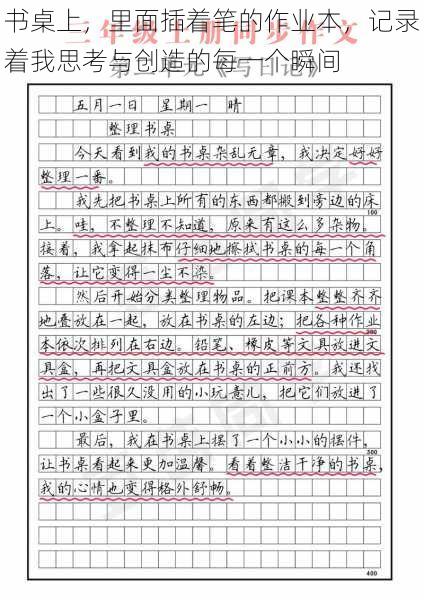 书桌上，里面插着笔的作业本，记录
着我思考与创造的每一个瞬间
三年级上册同步作文
第二单元《写日记》
五月一日 星期一 晴
整理书桌
今天看到我的书桌杂乱无章，我决定好好
整理一番。
我先把书桌上所有的东西都搬到旁边的床
上。哇，不整理不知道，原来有这么多杂物。
100
接着，我拿起抹布仔细地擦拭书桌的每一个角
落，让它变得一尘不染。
然后开始分类整理物品。把课本整整齐齐
地叠放在一起，放在书桌的左边；把各种作业
本依次排列在右边。铅笔、橡皮等文具放进文
具盒，再把文具盒放在书桌的正前方。我还找
出了一些很久没用的小玩意儿，把它们放进了
一个小盒子里。
最后，我在书桌上摆了一个小小的摆件，
300
让书桌看起来更加温馨。看着整洁干净的书桌，
我的心情也变得格外舒畅。
400